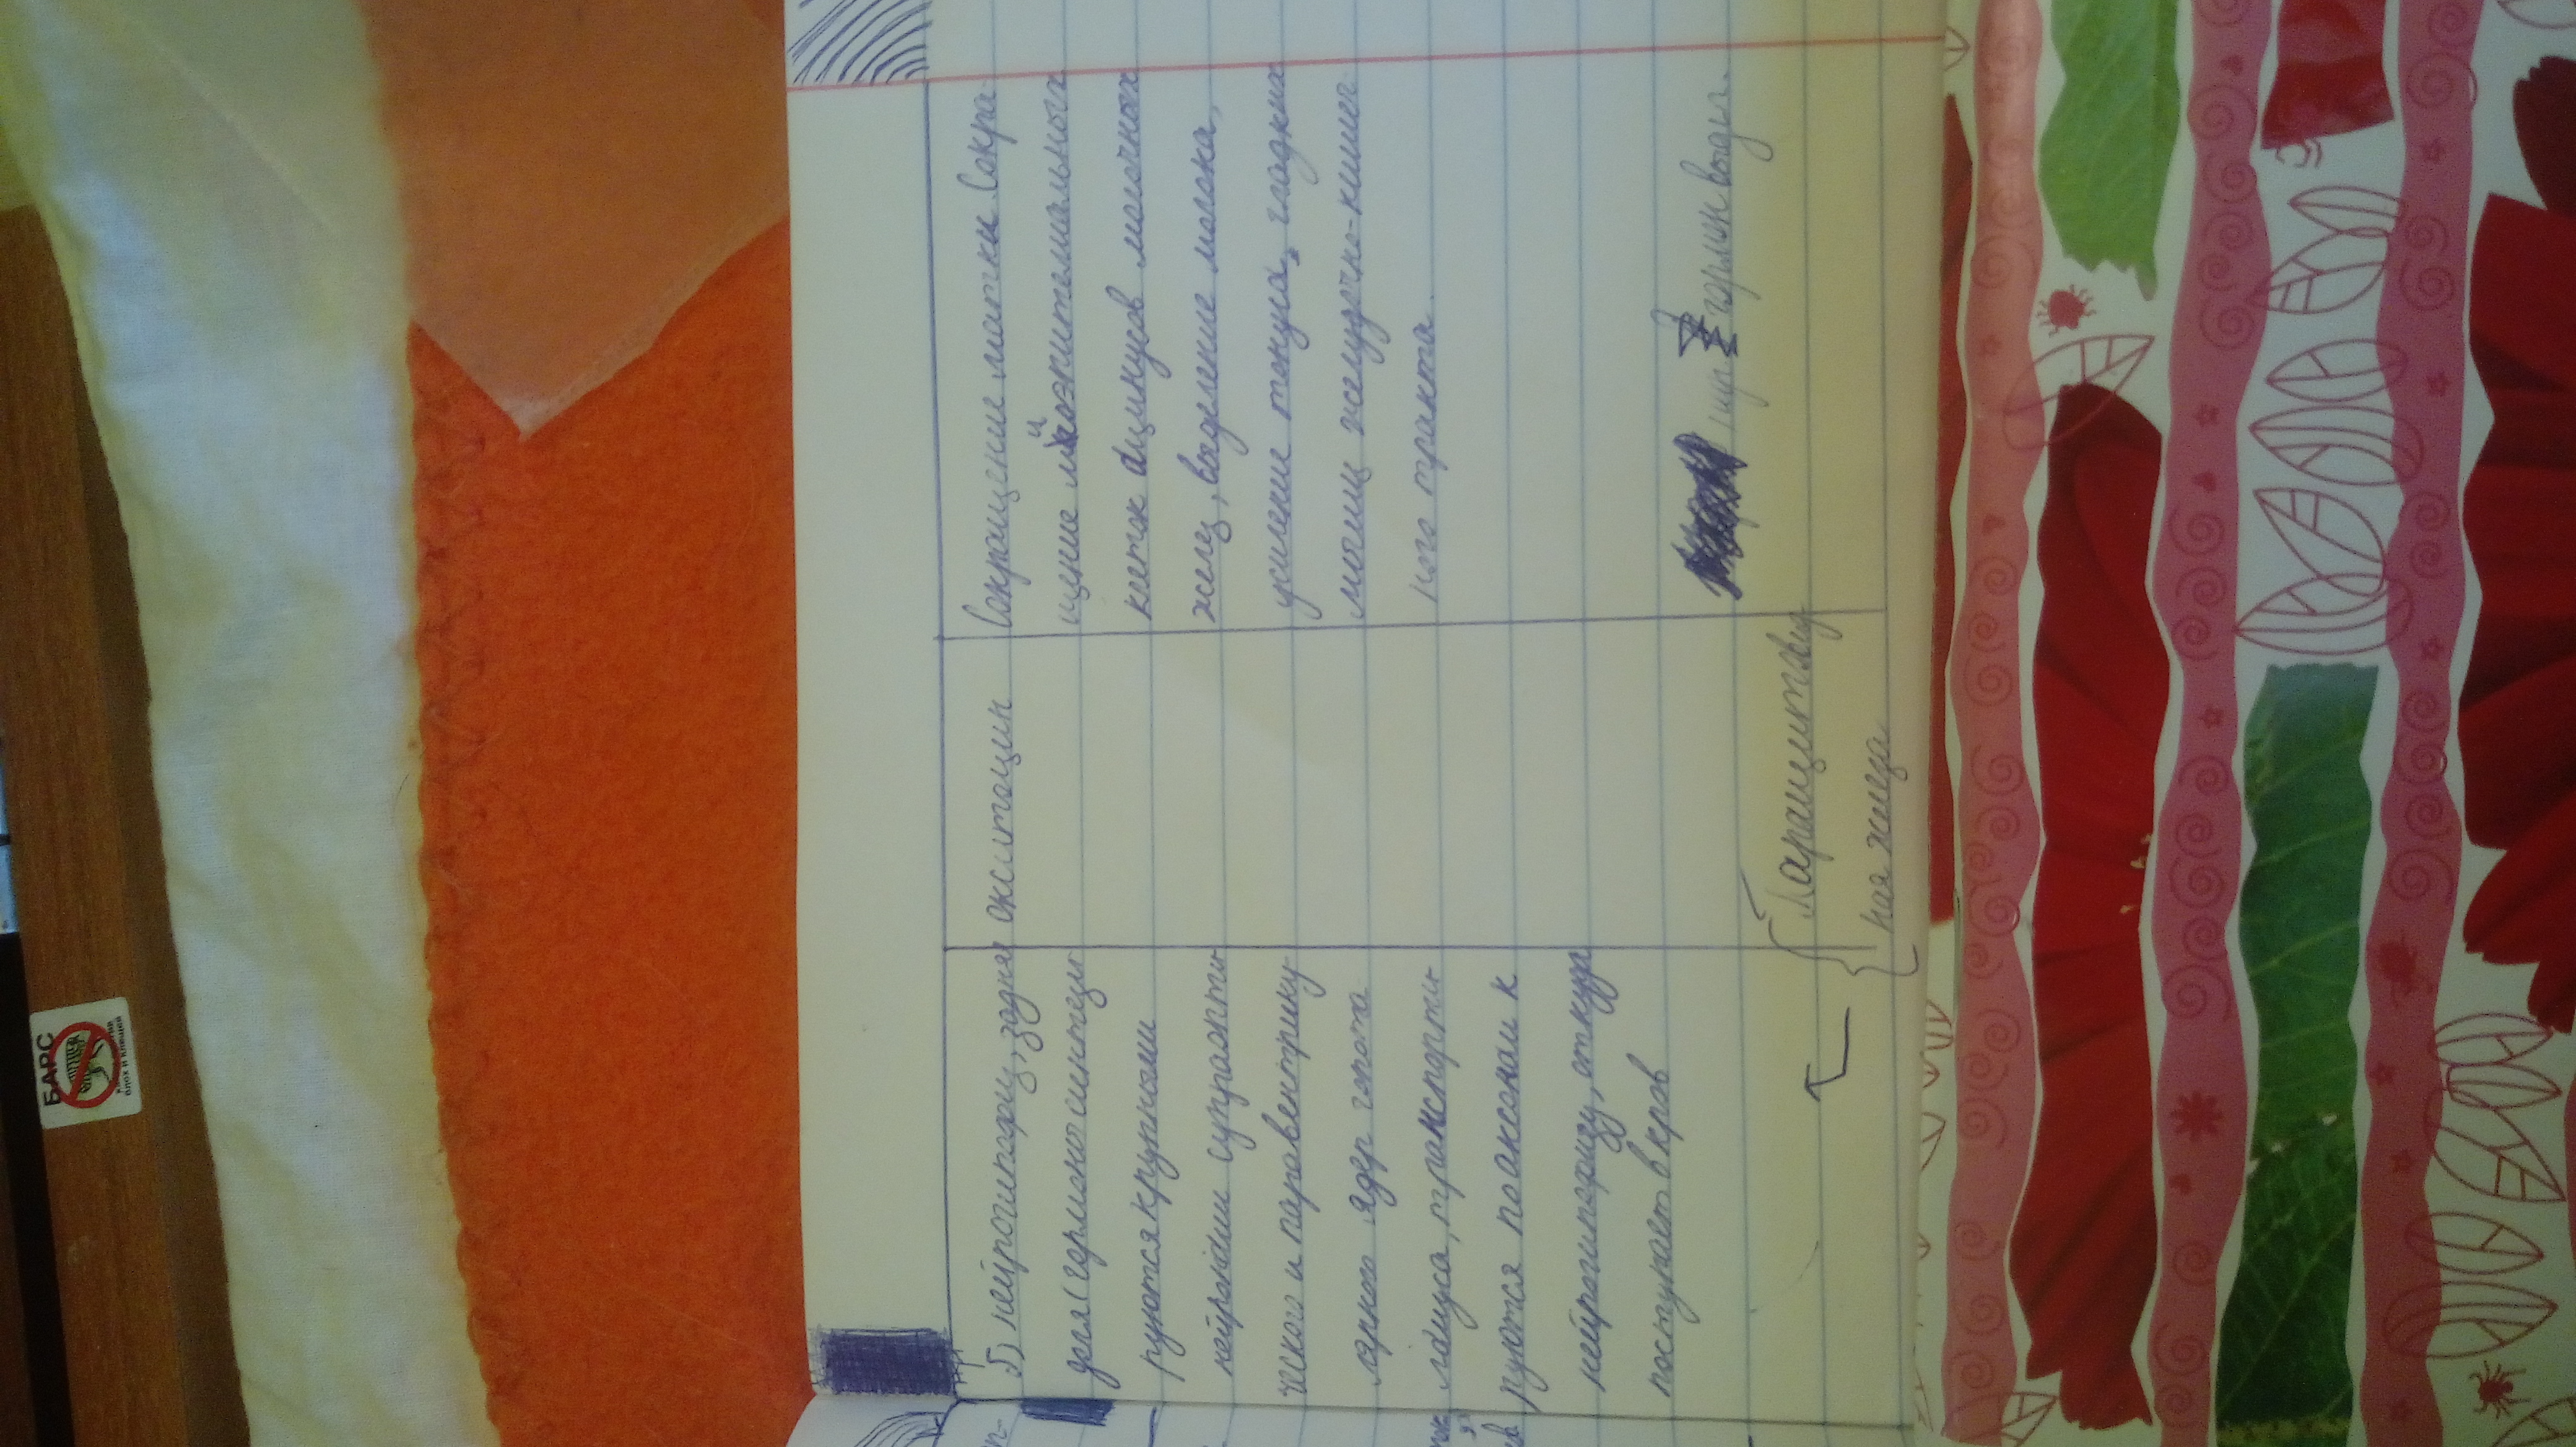 Б) нейрогипофиз, задняя
доля (гормоно синтези-
руются крупными
нейронами супраопти-
ческого и паравентрику-
лярного ядер гипота-
ламуса, транспорти-
руются по аксонам к
нейрогипофизу, откуда
поступает в кровь
окситоцин
Сокращение матки. Сокра-
щение миоэпителиальных
клеток ацинусов молочных
желез, выделение молока,
усиление тонуса, гладких
мышц желудочно-кишеч
ного тракта.
гормон выдел.
Паращитовид
ная железа
БАРС
блох и клещей